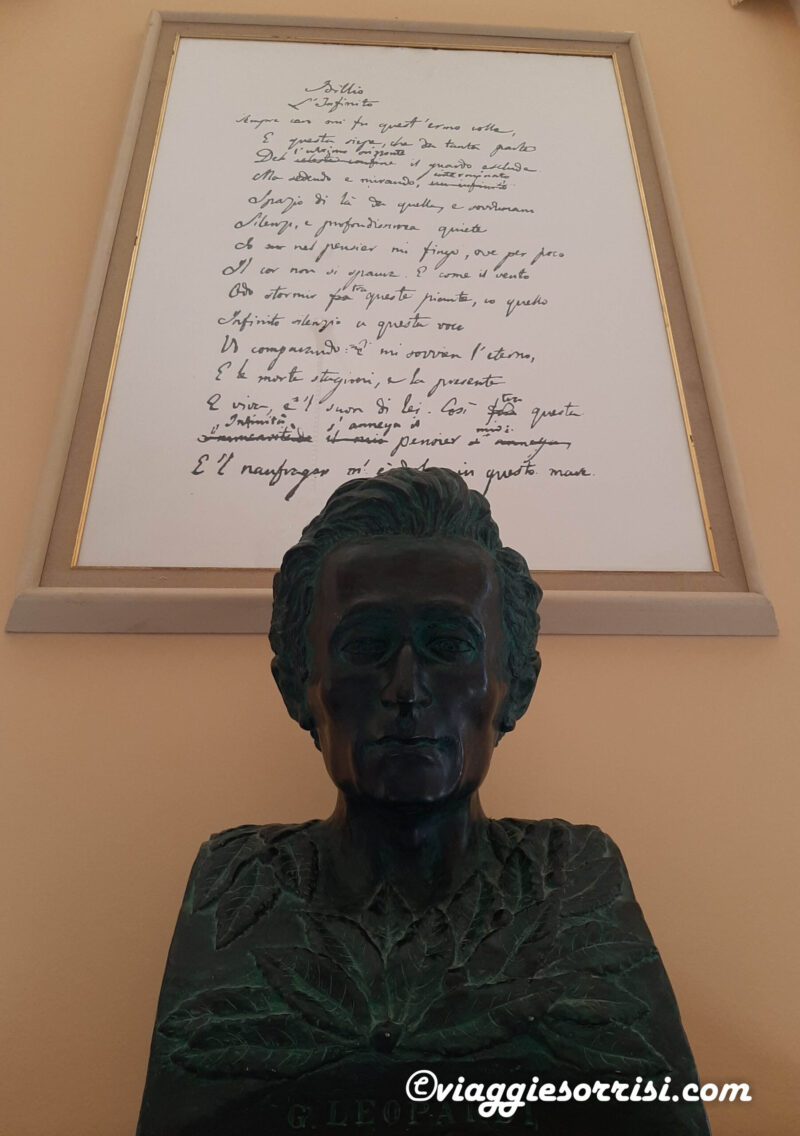 Idillio
L'Infinito
Sempre caro mi fu quest'ermo colle,
E questa siepe, che da tanta parte
l'ultimo orizzonte
Del celeste confine il guardo esclude
interminato
Ma sedendo e mirando, un infinito
Spazio di là da quella, e sovrumani
Silenzi, e profondissima quiete
Io nel pensier mi fingo, ove per poco
Il cor non si spaura. E come il vento
tra
Odo stormir fra queste piante, io quello
Infinito silenzio a questa voce
Vo comparando: E mi sovvien l'eterno,
E le morte stagioni, e la presente
tra
E viva, e'l suon di lei. Così fra questa
Infinità s'annega il mio:
Immensitade il mio pensier s'annega,
E'l naufragar m'è in questo mare.
G. LEOPARDI
©viaggiesorrisi.com